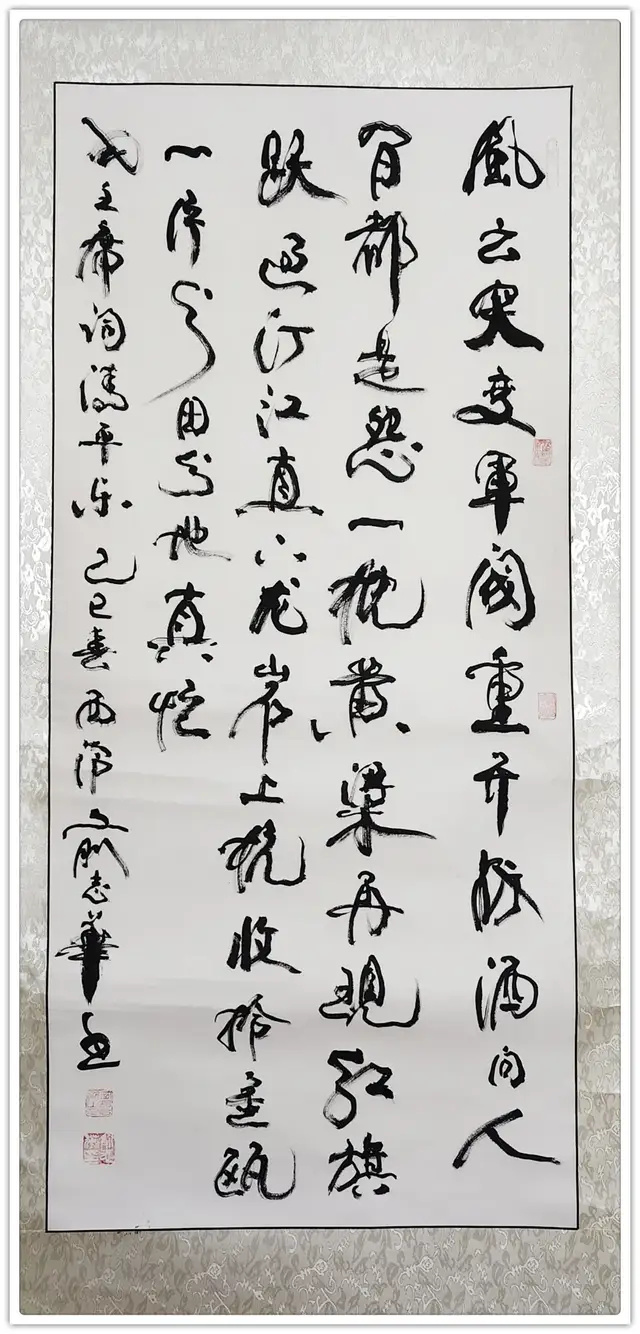 風云突变軍阀重开战洒向人
间都是怨一枕黄粱再現红旗
跃过汀江直下龙岩上杭收拾金瓯
一片分田分地真忙
毛主席词清平乐 巳春 俞志華書